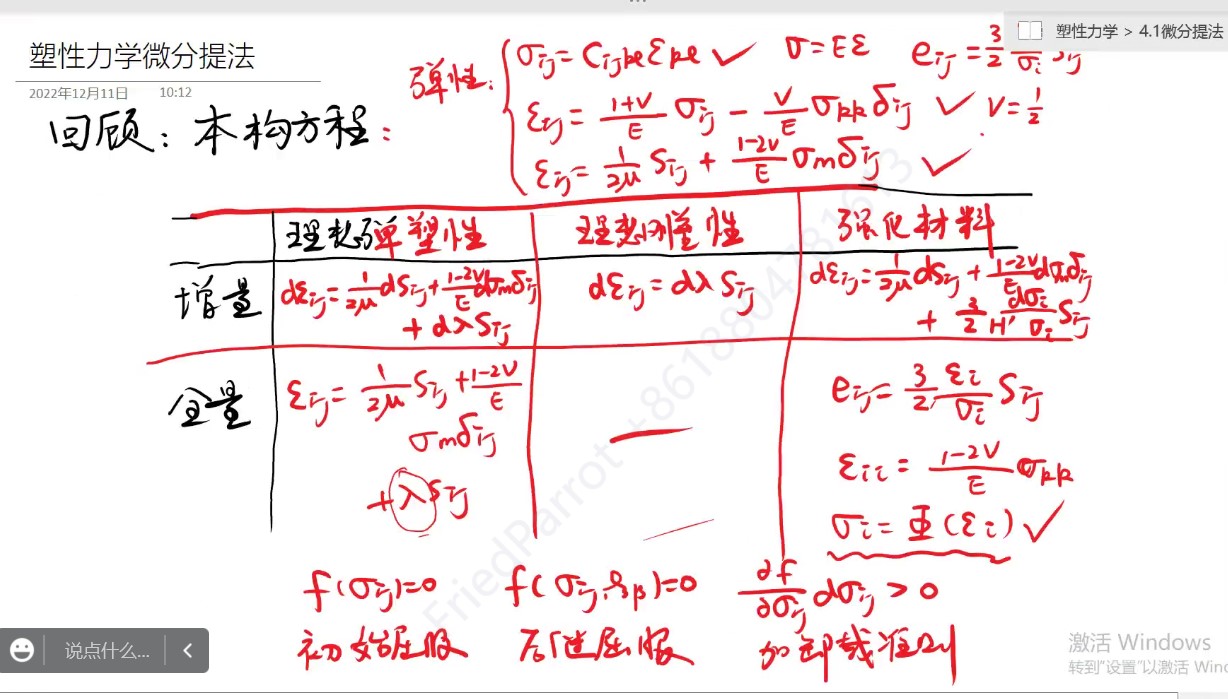 塑性力学 > 4.1微分提法
塑性力学微分提法
2022年12月11日 10:12
回顾：本构方程：
弹性：
σij = Cijkl εkl ✓ σ = Eε eij = 3/2 σi Sij
εij = (1+ν)/E σij − ν/E σkk δij ✓ ν = 1/2
εij = 1/(2μ) Sij + (1−2ν)/E σm δij ✓
理想弹塑性 理想刚塑性 强化材料
增量
dεij = 1/(2μ) dSij + (1−2ν)/E dσm δij
+ dλ Sij
dεij = dλ Sij
dεij = 1/(2μ) dSij + (1−2ν)/E dσm δij
+ 3/2 dσi/(H' σi) Sij
全量
εij = 1/(2μ) Sij + (1−2ν)/E
σm δij
+ λ Sij
—
eij = 3/2 εi/σi Sij
εii = (1−2ν)/E σkk
σi = Φ(εi) ✓
f(σij) = 0 f(σij, ξβ) = 0 ∂f/∂σij dσij > 0
初始屈服 后继屈服 加卸载准则
FriedParrot +8618804781613
说点什么...
激活 Windows
转到"设置"以激活 Win